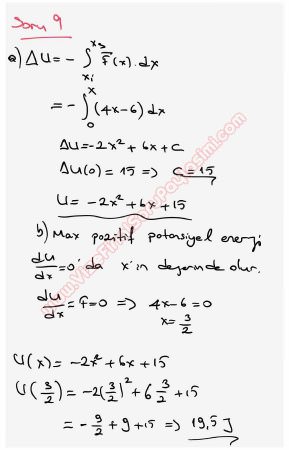 Soru 9
a) ΔU = - ∫_{xi}^{xs} F(x).dx
= - ∫_{0}^{x} (4x-6) dx
ΔU = -2x² + 6x + C
ΔU(0) = 15 => C = 15
U = -2x² + 6x + 15
b) Max pozitif potansiyel enerji
dU/dx = 0' da x'in degerinde olur.
dU/dx = F = 0 => 4x-6 = 0
x = 3/2
U(x) = -2x² + 6x + 15
U(3/2) = -2(3/2)² + 6 3/2 + 15
= - 9/2 + 9 + 15 => 19,5 J